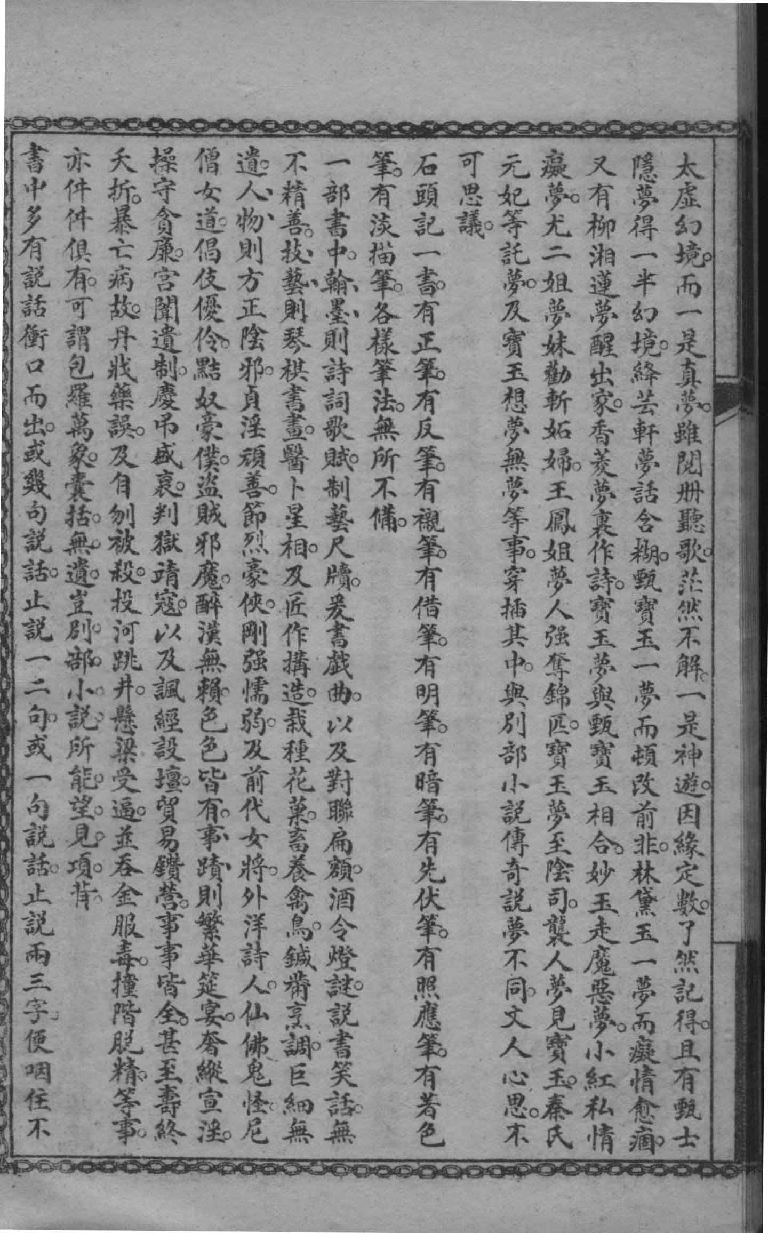 太虛幻境。而一是真夢。雖閱册聽歌。茫然不解。一是神遊。因緣定數。了然記得。且有甄士
隱夢得一半幻境。絳芸軒夢話含糊。甄寶玉一夢而頓改前非。林黛玉一夢而癡情愈痼。
又有柳湘蓮夢醒出家。香菱夢裏作詩。寶玉夢與甄寶玉相合。妙玉走魔惡夢。小紅私情
癡夢。尤二姐夢妹勸斬妬婦。王鳳姐夢人强奪錦匹。寶玉夢至陰司。襲人夢見寶玉。秦氏
元妃等託夢。及寶玉想夢無夢等事。穿插其中。與別部小說傳奇説夢不同。文人心思。不
可思議。
石頭記一書。有正筆。有反筆。有襯筆。有借筆。有明筆。有暗筆。有先伏筆。有照應筆。有著色
筆。有淡描筆。各樣筆法。無所不備。
一部書中。翰墨則詩詞歌賦。制藝尺牘。爰書戲曲。以及對聯扁額。酒令燈謎。説書笑話。無
不精善。技藝則琴棋書畫。醫卜星相。及匠作搆造。栽種花菓。畜養禽鳥。鍼黹烹調。巨細無
遺。人物則方正陰邪。貞淫頑善。節烈豪俠。剛强懦弱。及前代女將。外洋詩人。仙佛鬼怪。尼
僧女道。倡伎優伶。黠奴豪僕。盜賊邪魔。醉漢無賴。色色皆有。事蹟則繁華筵宴。奢縱宣淫。
操守貪廉。宮闈遺制。慶弔盛衰。判獄靖寇。以及諷經設壇。貿易鑽營。事事皆全。甚至壽終
夭折。暴亡病故。丹戕藥誤。及自刎被殺。投河跳井。懸梁受逼。並吞金服毒。撞階脱精等事。
亦件件俱有。可謂包羅萬象。囊括無遺。豈別部小説所能望見項背。
書中多有説話衝口而出。或幾句説話。止説一二句。或一句説話。止説兩三字。便咽住不